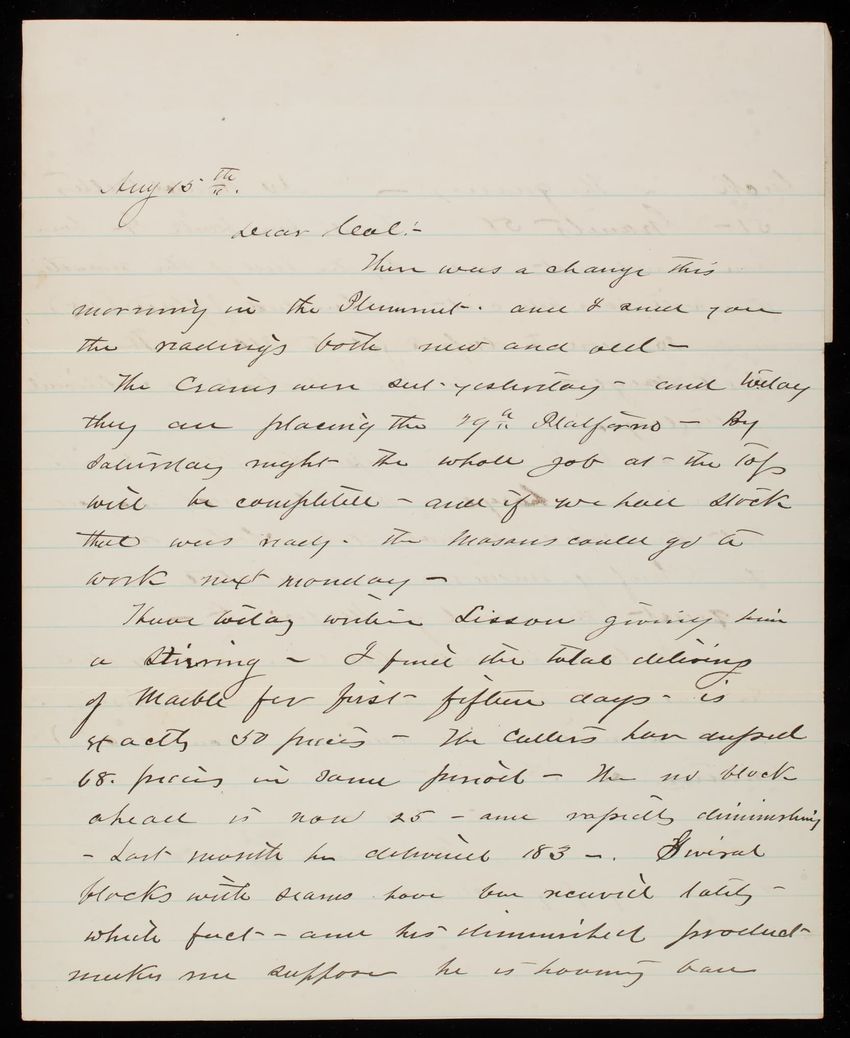 Aug 15th.
Dear Col:-
There was a change this
morning in the Plummet. and I send you
the readings both new and old-
The Cranes were set yesterday - and today
they are placing the 29th Platform - By
Saturday night the whole job at the top
will be completed - and if we had stock
that was ready. the Masons could go to
work next monday -
I have today written Sisson giving him
a Stirring - I find the total delivery
of Marble for first fifteen days - is
exactly 50 pieces - The Cutters have dressed
68. pieces in same period - The no block
ahead is now 25 - and rapidly diminishing
- Last month he delivered 183 -. Several
blocks with seams have been received lately -
which fact - and his diminished product
makes me suppose he is having bad